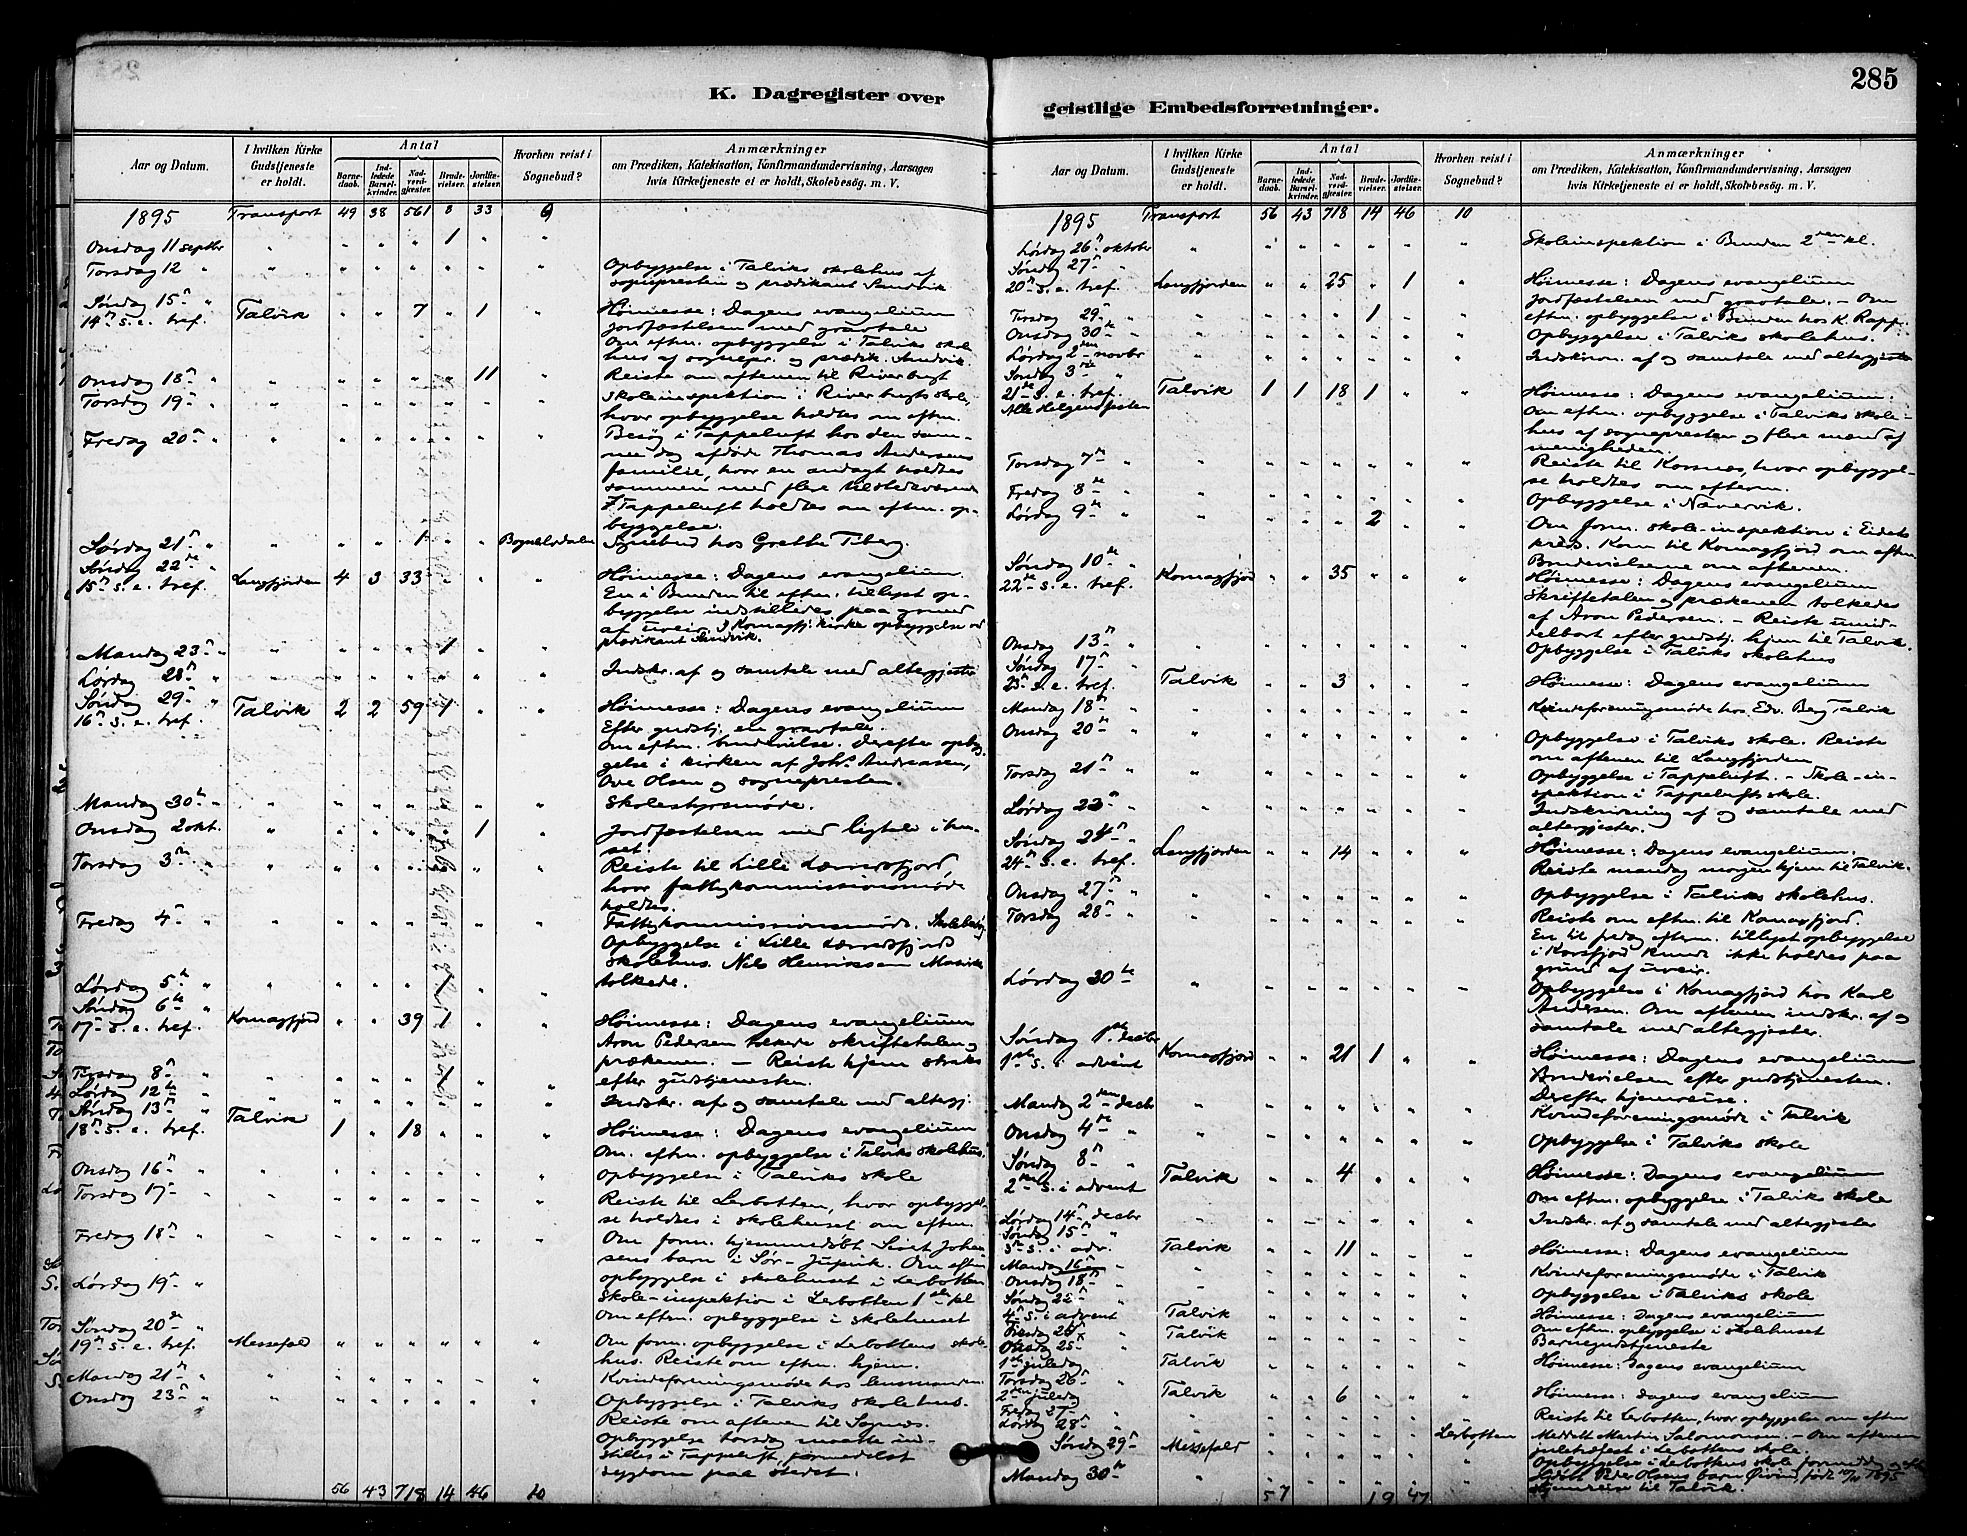 285
K. Dagregister over
geistlige Embedsforretninger.
Aar og Datum.
I hvilken Kirke Gudstjeneste er holdt.
Antal
Barnedaab.
Indledede Barselkvinder.
Nadverdgjester.
Brudevielser.
Jordfæstelser.
Hvorhen reist i Sognebud?
Anmærkninger
om Prædiken, Katekisation, Konfirmandundervisning, Aarsagen
hvis Kirketjeneste ei er holdt, Skolebesøg. m. V.
1895 Transport 49 38 561 8 33 9
Onsdag 11 septbr " " " " 1 " "
Torsdag 12 " " " " " " " " Opbyggelse i Talviks skolehus af
sognepresten og prædikant Sandvik
Søndag 15de "
14de s. e. tref. Talvik " " 7 " 1 " Høimesse: Dagens evangelium
Jordfæstelsen med gravtale
Om eftm. opbyggelse i Talviks skole
hus af sognepr. og prædik. Sandvik.
Onsdag 18de " " " " " " 11 " Reiste om aftenen til Riverbugt
Torsdag 19de " " " " " " " " Skoleinspektion i Riverbugts skole,
hvor opbyggelse holdtes om eftm.
Fredag 20de " " " " " " " " Besøg i Tappeluft hos den sam-
me dag afdøde Thomas Andersens
familie, hvor en andagt holdtes
sammen med flere tilstedeværende
I Tappeluft holdtes om eftm. op-
byggelse.
Lørdag 21de " " " " 1 " " Bognelvdalen Sognebud hos Grethe Tiberg.
Søndag 22de
15de s. e. tref. Langfjorden 4 3 33 " " " Høimesse: Dagens evangelium.
En i Bunden til eftm. tillyst op-
byggelse indstilledes paa grund
af uveir. I Komagfj. kirke opbyggelse ved
prædikant Sandvik.
Mandag 23de " " " " " 1 " "
Lørdag 28de " " " " " " " " Indskr. af og samtale med altergjester
Søndag 29de "
16de s. e. tref. Talvik 2 2 59 1 " " Høimesse: Dagens evangelium
Efter gudstj. en gravtale.
Om eftm. brudevielse. Derefter opbyg-
gelse i kirken af Johs. Andreasen,
Ove Olsen og sognepresten.
Mandag 30te " " " " " " " " Skolestyrsmøde.
Onsdag 2 okt. " " " " " 1 " Jordfæstelsen med ligtale i hu-
set.
Torsdag 3die " " " " " " " " Reiste til Lille Lerresfjord,
hvor fattigkommissionsmøde
holdtes.
Fredag 4de " " " " " " " " Fattigkommissionsmøde. Skolebesøg
Opbyggelse i Lille Lerresfjords
skolehus. Nils Henriksen
tolkede.
Lørdag 5te " " " " " " "
Søndag 6te "
17de s. e. tref. Komagfjord " " 39 1 " " Høimesse: Dagens evangelium
Aron Pedersen tolkede skriftetalen og
prækenen. — Reiste hjem straks
efter gudstjenesten.
Tirsdag 8de " " " " " " " "
Lørdag 12te " " " " " " " " Indskr. af og samtale med altergj.
Søndag 13de "
18de s. e. tref. Talvik 1 " 18 " " " Høimesse: Dagens evangelium
Om. eftm. opbyggelse i Talviks skolehus.
Onsdag 16de " " " " " " " " Opbyggelse i Talviks skole
Torsdag 17de " " " " " " " " Reiste til Lerbotten, hvor opbyggel-
se holdtes i skolehuset om eftm.
Fredag 18de " " " " " " " " Om form. hjemmedøbt Sivert Johan-
sens barn i Sør- Om eftm.
opbyggelse i skolehuset i Lerbotten
Lørdag 19de " Skole-inspektion i Lerbotten 1ste kl
Om eftm. opbyggelse i skolehuset
Søndag 20de "
19de s. e. tref. Messefald " " " " " " Om form. opbyggelse i Lerbottens skole-
hus. Reiste om eftm. hjem.
Mandag 21de " " " " " " " " Kvindeforeningsmøde hos lensmanden.
Onsdag 23de " " " " " " " " Opbyggelse i Talviks skolehus.
Reiste om aftenen til
Opbyggelse torsdag maatte ind-
stilles i Tappeluft, formedelst
sygdom paa stedet.
56 43 718 14 46 10
Aar og Datum.
I hvilken Kirke Gudstjeneste er holdt.
Antal
Barnedaab.
Indledede Barselkvinder.
Nadverdgjester.
Brudevielser.
Jordfæstelser.
Hvorhen reist i Sognebud?
Anmærkninger
om Prædiken, Katekisation, Konfirmandundervisning, Aarsagen
hvis Kirketjeneste ei er holdt, Skolebesøg. m. V.
1895 Transport 56 43 718 14 46 10
Lørdag 26de oktober " " " " " " " Skoleinspektion i Bunden 2den kl.
Søndag 27de "
20de s. e. tref. Langfjorden " " 25 " 1 " Høimesse: Dagens evangelium
Jordfæstelsen med gravtale. — Om
Tirsdag 29de " " " " " 1 " " eftm. opbyggelse i Bunden hos K. Rapp.
Onsdag 30te " " " " " " " " Opbyggelse i Talviks skolehus.
Lørdag 2den novbr " " " " " " " Indskrivn. af og samtale med altergjester
Søndag 3die "
21de s. e. tref. Talvik 1 1 18 1 " " Høimesse: Dagens evangelium.
Alle Helgensfesten Om eftm. opbyggelse i Talviks skole-
hus af sognepresten og flere mænd af
menigheden.
Torsdag 7de " " " " " " " " Reiste til Korsnes, hvor opbyggel-
se holdtes om efterm.
Fredag 8de " " " " " " " " Opbyggelse i Nævervik.
Lørdag 9de " " " " 2 " " Om form. skole-inspektion i Eidets
kreds. Kom til Komagfjord om eftm.
Brudevielserne om aftenen.
Søndag 10de "
22de s. e. tref. Komagfjord " " 35 " " " Høimesse: Dagens evangelium
Skriftetalen og prækenen tolkedes
af Aron Pedersen. — Reiste umid-
delbart efter gudstj. hjem til Talvik.
Onsdag 13de " " " " " " " " Opbyggelse i Talviks skolehus
Søndag 17de "
23de s. e. tref. Talvik " " 3 " " " Høimesse: Dagens evangelium
Mandag 18de " " " " " " " " Kvindeforeningsmøde hos Edv. Berg Talvik
Onsdag 20de " " " " " " " " Opbyggelse i Talviks skole. Reiste
om aftenen til Langfjorden
Torsdag 21de " " " " " " " " Opbyggelse i Tappeluft. — Skole-in-
spektion i Tappelufts skole.
Lørdag 23 " " " " " " " " Indskrivning af og samtale med
altergjester.
Søndag 24de "
24de s. e. tref. Langfjorden " " 14 " " " Høimesse: Dagens evangelium.
Reiste mandag morgen hjem til Talvik.
Onsdag 27de " " " " " " " " Opbyggelse i Talviks skolehus.
Torsdag 28de " " " " " " " " Reiste om eftm. til Komagfjord.
En til fredag efterm. tillyst opbyggelse
i Korsfjord kunde ikke holdes paa
grund af uveir.
Lørdag 30te " " " " " " " Opbyggelse i Komagfjord hos Karl
Andersen. Om aftenen indskr. af og
samtale med altergjester.
Søndag 1ste decbr
1ste s. i advent Komagfjord " " 21 1 " " Høimesse: Dagens evangelium
Brudevielsen efter gudstjenesten.
Derefter hjemreise.
Mandag 2den decbr " " " " " " " Kvindeforeningsmøde i Talvik
Onsdag 4de " " " " " " " " Opbyggelse i Talviks skole
Søndag 8de "
2den s. i advent Talvik " " 4 " " " Høimesse: Dagens evangelium
Om eftm. opbyggelse i Talviks skole
Lørdag 14de decbr " " " " " " " Indskr. af og samtale med altergjester
Søndag 15de "
3die s. i adv. Talvik " " 11 " " " Høimesse: Dagens evangelium
Mandag 16de " " " " " " " " Kvindeforeningsmøde i Talvik
Onsdag 18de " " " " " " " " Opbyggelse i Talviks skole
Søndag 22de "
4de s. i advent Talvik " " " " " " Høimesse: Dagens evangelium
Om eftm. opbyggelse i skolehuset
Tirsdag 24de " Talvik " " " " " " Barnegudstjeneste
Onsdag 25de
1ste juledag Talvik " " " " " " Høimesse: Dagens evangelium
Torsdag 26de "
2den juledag Talvik " " 6 " " " Høimesse: Dagens evangelium
Fredag 27de " Reiste til Lerbotten, hvor opbyggelse om eftm
Lørdag 28de " " " " " " " Lerbotten Meddelt Martin Salomonsen. — Om aftenen
juletræfest i Lerbottens skole.
Søndag 29de Messefald Opbyggelse i Lerbottens skole formiddag og eftm
Mandag 30te Peder Olsens barn Øivind, født 10/11 1895
Hjemreise til Talvik.
57 19 47